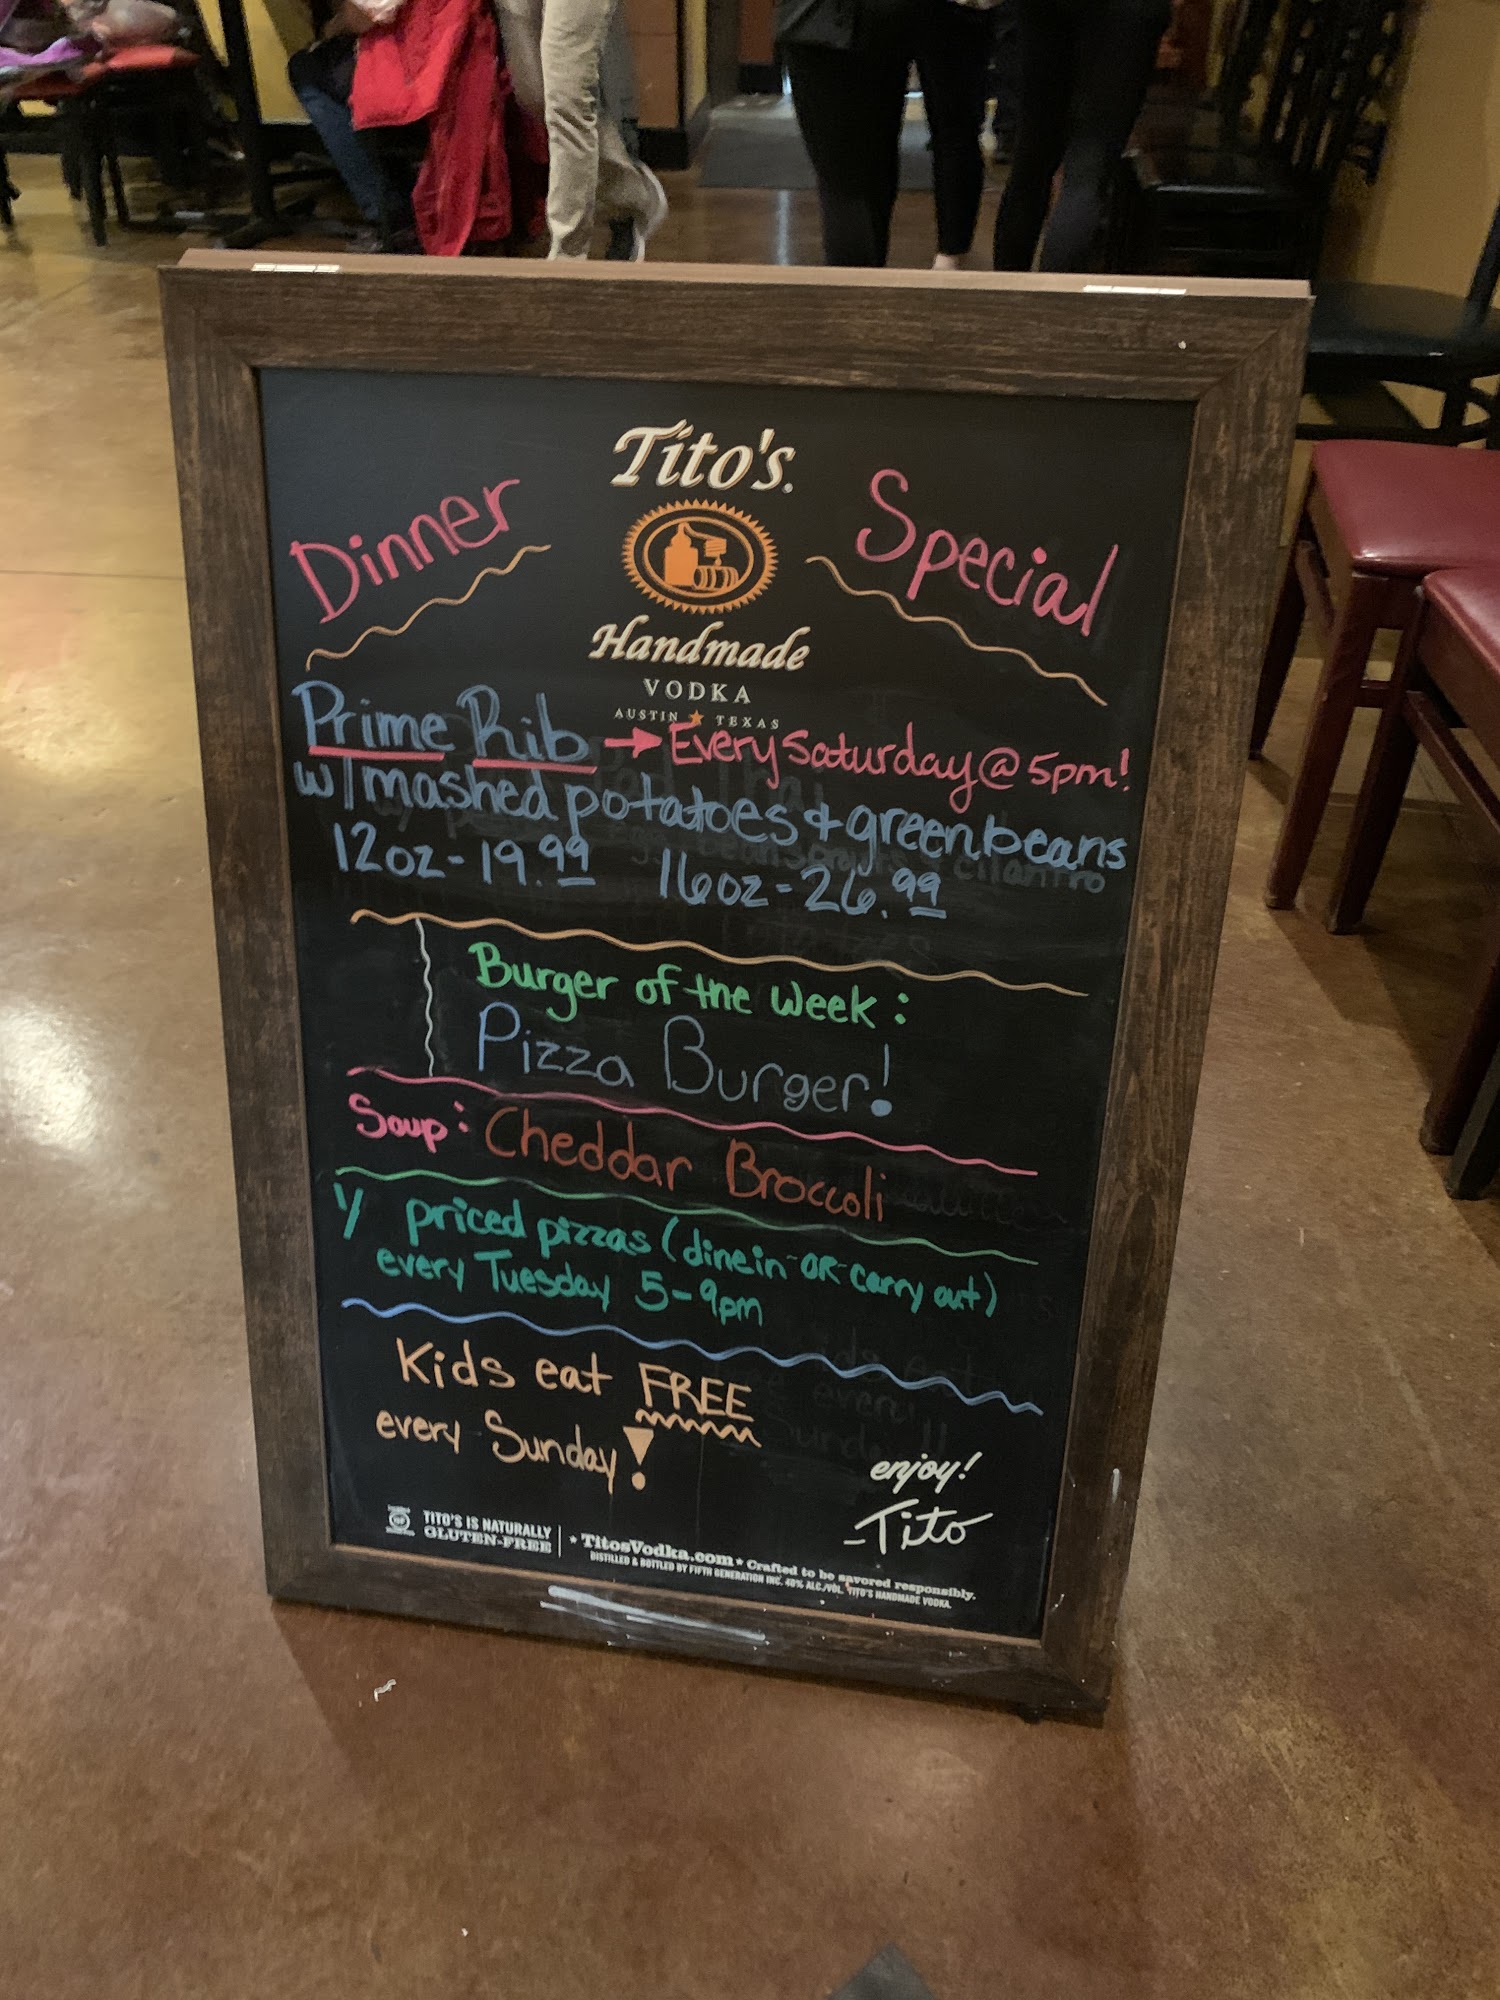 Tito's.
Dinner Special
Handmade
VODKA
AUSTIN ★ TEXAS
Prime Rib → Every Saturday @ 5pm!
w/ mashed potatoes + green beans
12oz - 19.99 16oz - 26.99
Burger of the Week:
Pizza Burger!
Soup: Cheddar Broccoli
1/ priced pizzas (dine in -OR- carry out)
every Tuesday 5-9pm
Kids eat FREE
every Sunday!
enjoy!
-Tito
TITO'S IS NATURALLY
GLUTEN-FREE
★ TitosVodka.com ★ Crafted to be savored responsibly.
DISTILLED & BOTTLED BY FIFTH GENERATION INC. 40% ALC./VOL. TITO'S HANDMADE VODKA.